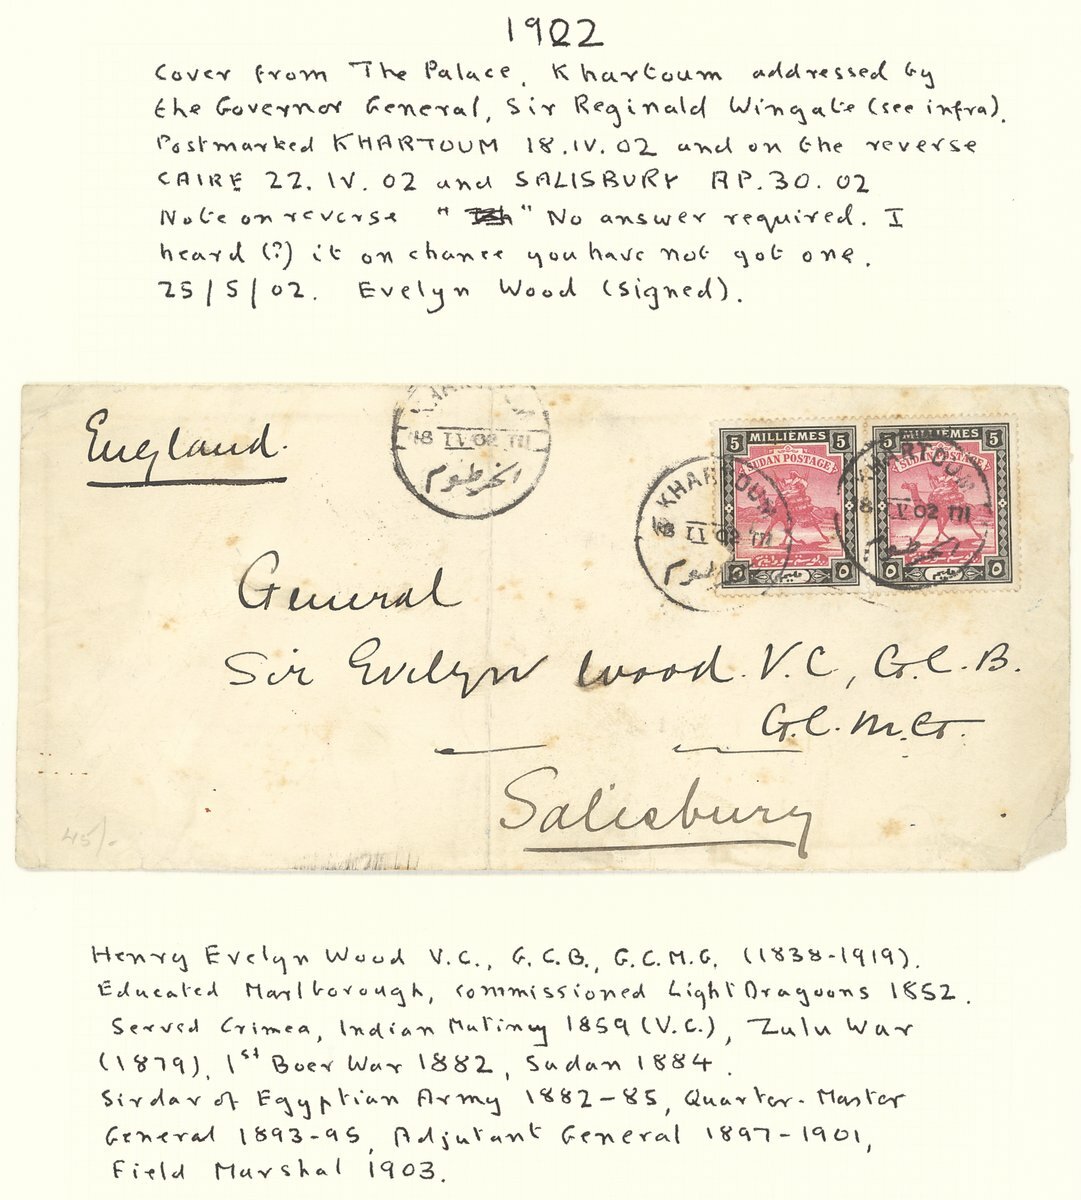 1902
Cover from The Palace, Khartoum addressed by
the Governor General, Sir Reginald Wingate (see infra).
Postmarked KHARTOUM 18.IV.02 and on the reverse
CAIRE 22.IV.02 and SALISBURY AP.30.02
Note on reverse " " No answer required. I
heard (?) it on chance you have not got one.
25/5/02. Evelyn Wood (signed).
England.
KHARTOUM
18 IV 02
الخرطوم
5 MILLIÈMES 5
SUDAN POSTAGE
٥ ٥
5 MILLIÈMES 5
SUDAN POSTAGE
٥ ٥
KHARTOUM
18 IV 02
الخرطوم
KHARTOUM
18 IV 02
الخرطوم
General
Sir Evelyn Wood. V.C, G.C.B.
G.C.M.G.
Salisbury
45/-
Henry Evelyn Wood V.C., G.C.B., G.C.M.G. (1838-1919).
Educated Marlborough, commissioned Light Dragoons 1852.
Served Crimea, Indian Mutiny 1859 (V.C.), Zulu War
(1879), 1st Boer War 1882, Sudan 1884.
Sirdar of Egyptian Army 1882-85, Quarter-Master
General 1893-95, Adjutant General 1897-1901,
Field Marshal 1903.